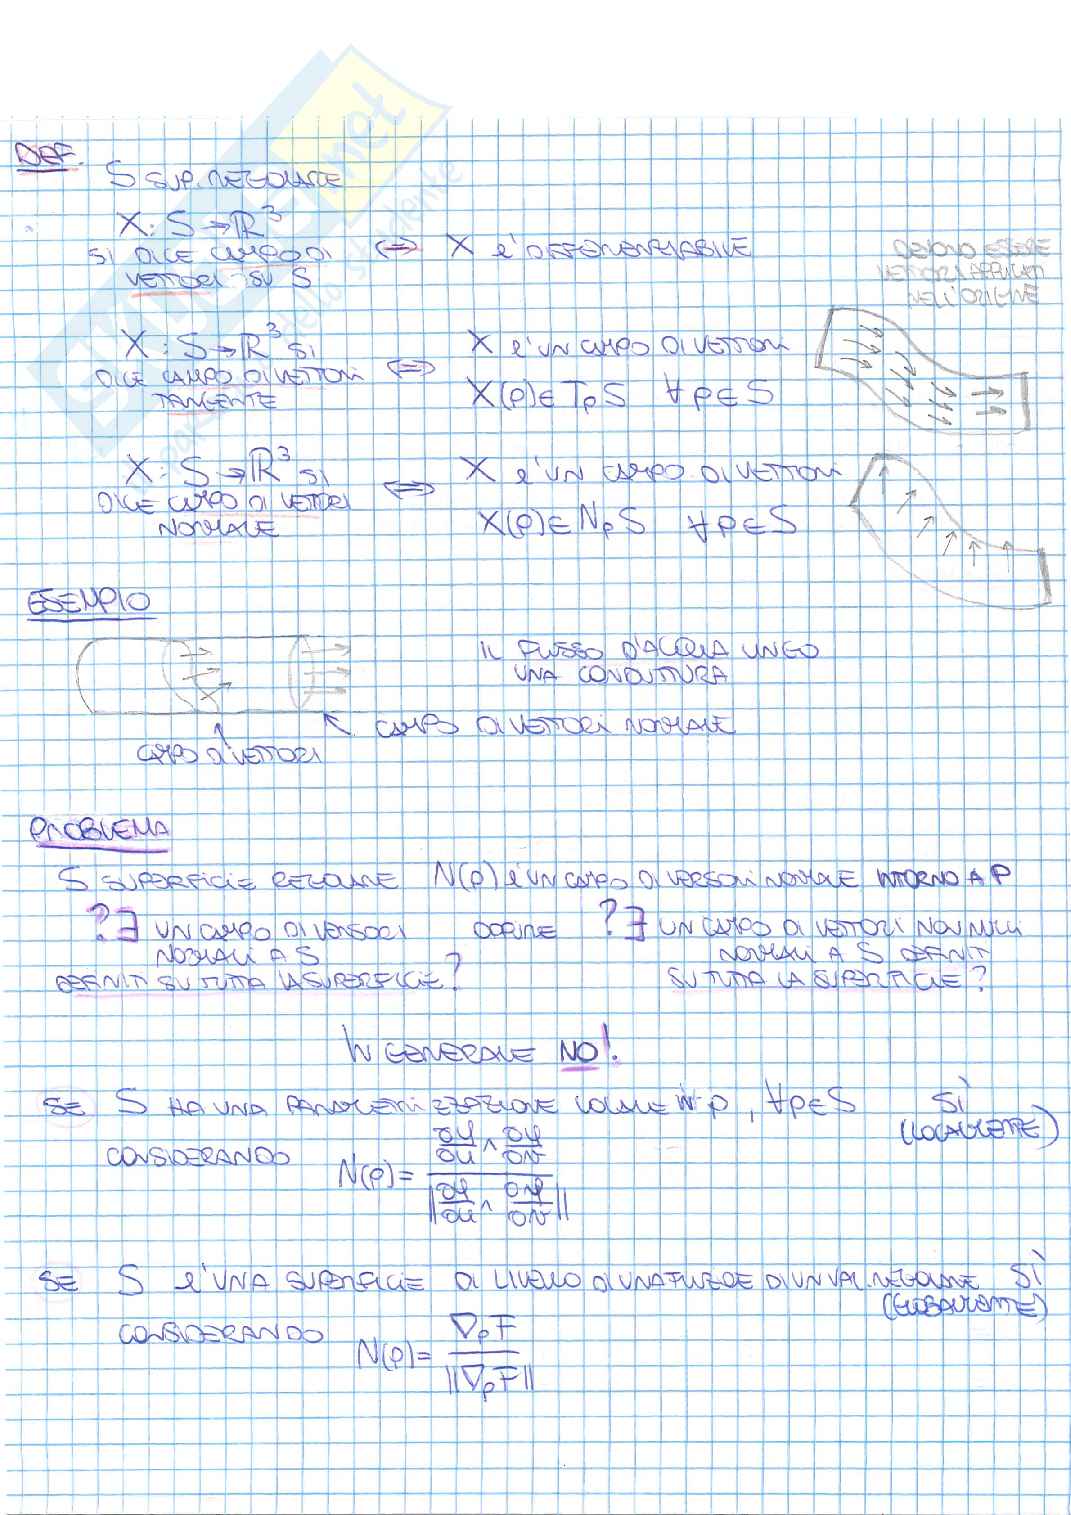 DEF.
S SUP. REGOLARE
X: S → ℝ³
SI DICE CAMPO DI VETTORI SU S ⟺ X è DIFFERENZIABILE
DEVONO ESSERE
VETTORI APPLICATI
NELL'ORIGINE
X: S → ℝ³ SI
DICE CAMPO DI VETTORI
TANGENTE
⟺ X è UN CAMPO DI VETTORI
X(p) ∈ TpS ∀p∈S
X: S → ℝ³ SI
DICE CAMPO DI VETTORI
NORMALE
⟺ X è UN CAMPO DI VETTORI
X(p) ∈ NpS ∀p∈S
ESEMPIO
IL FLUSSO D'ACQUA LUNGO
UNA CONDUTTURA
CAMPO DI VETTORI NORMALE
CAMPO DI VETTORI
PROBLEMA
S SUPERFICIE REGOLARE N(p) è UN CAMPO DI VERSORI NORMALE INTORNO A P
?∃ UN CAMPO DI VERSORI
NORMALI A S
DEFINITI SU TUTTA LA SUPERFICIE?
OPPURE
?∃ UN CAMPO DI VETTORI NON NULLI
NORMALI A S DEFINITI
SU TUTTA LA SUPERFICIE?
IN GENERALE NO!
SE S HA UNA PARAMETRIZZAZIONE LOCALE IN p, ∀p∈S SÌ
(LOCALMENTE)
CONSIDERANDO N(p) = (∂φ/∂u ∧ ∂φ/∂v) / ||∂φ/∂u ∧ ∂φ/∂v||
SE S è UNA SUPERFICIE DI LIVELLO DI UNA FUNZ. DI UN VAL. REGOLARE SÌ
(GLOBALMENTE)
CONSIDERANDO N(p) = ∇pF / ||∇pF||